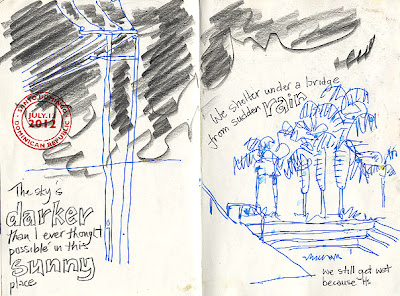 SANTO DOMINGO
JULY.12
2012
DOMINICAN REPUBLIC
The sky's
darker
than I ever thought
possible in this
sunny
place
We shelter under a bridge
from sudden rain
we still get wet
because it's